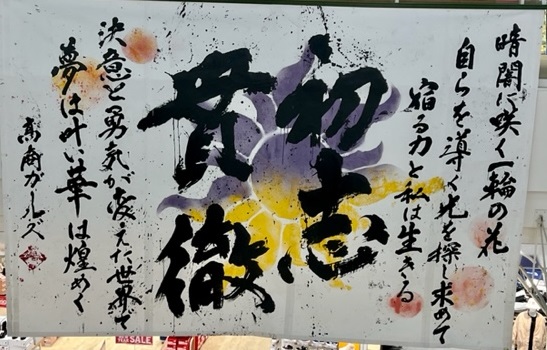 暗闇に咲く一輪の花
自らを導く光を探し求めて
宿る力と私は生きる
初志
貫徹
決意と勇気が変えた世界で
夢は叶い華は煌めく
高商ガールズへ
SALE